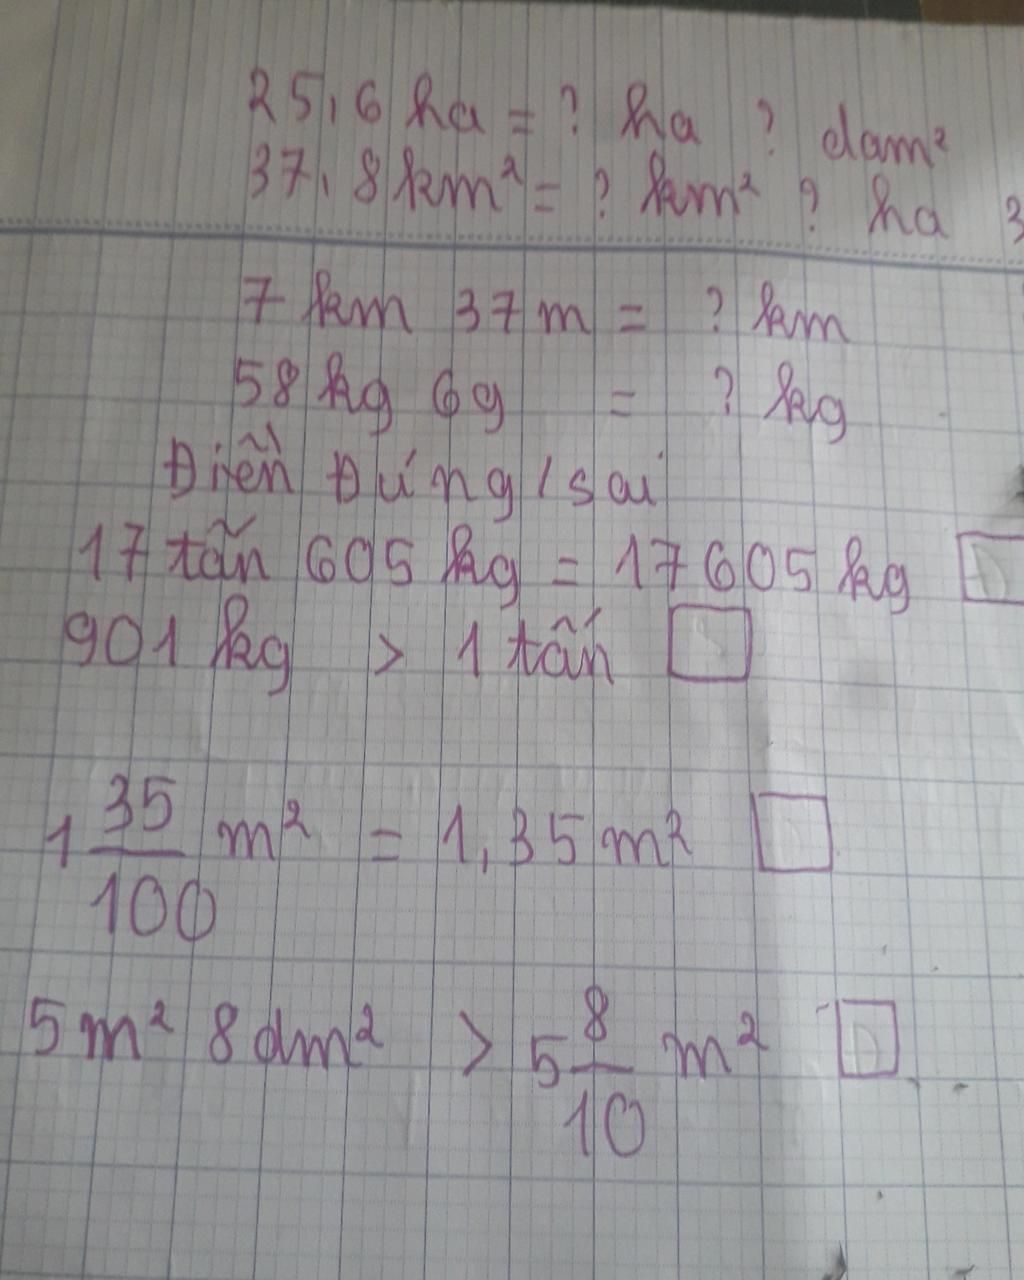 25,6 ha = ? ha ? dam²
37,8 km² = ? km² ? ha 3
7 km 37 m = ? km
58 kg 6g = ? kg
Điền Đúng / sai
17 tấn 605 kg = 17605 kg
901 kg > 1 tấn
1 35/100 m² = 1,35 m²
5 m² 8 dm² > 5 8/10 m²